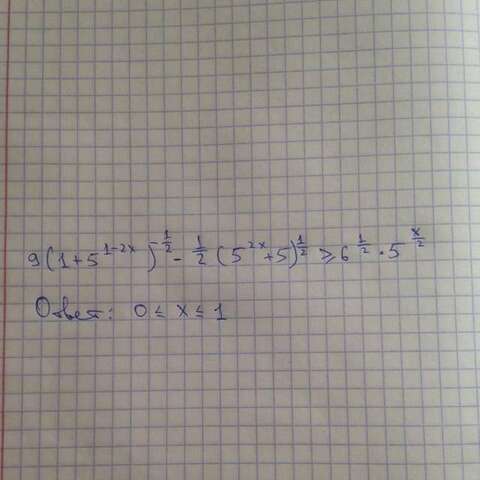 9(1+5^{1-2x})^{-\frac{1}{2}} - \frac{1}{2}(5^{2x}+5)^{\frac{1}{2}} ⩾ 6^{\frac{1}{2}} · 5^{\frac{x}{2}}
Ответ: 0 ≤ x ≤ 1